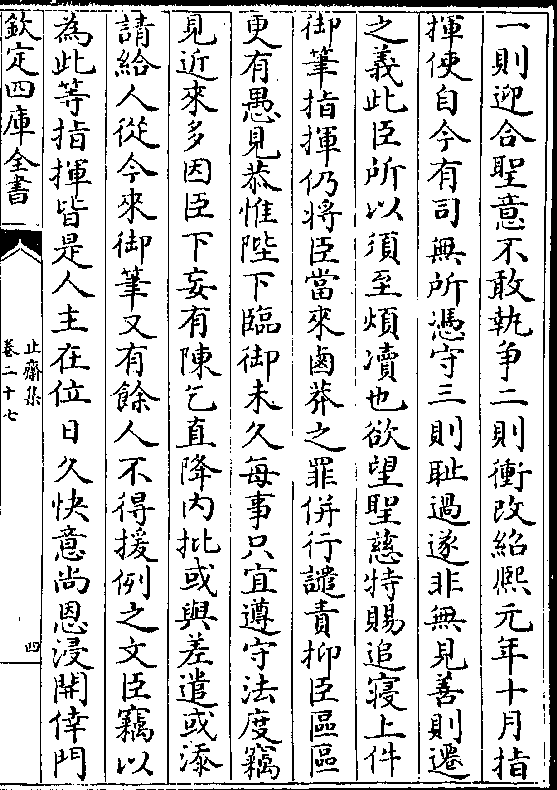 一則迎合聖意不敢執争二則衝改紹熙元年十月指
揮使自今有司無所憑守三則恥過遂非無見善則遷
之義此臣所以須至煩凟也欲望聖慈特賜追寢上件
御筆指揮仍將臣當來鹵莽之罪併行譴責抑臣區區
更有愚見恭惟陛下臨御未久每事只宜遵守法度竊
見近來多因臣下妄有陳乞直降内批或與差遣或添
請給人從今來御筆又有餘人不得援例之文臣竊以
為此等指揮皆是人主在位日久快意尚恩浸開倖門
欽定四庫全書
止齋集
卷二十七
四